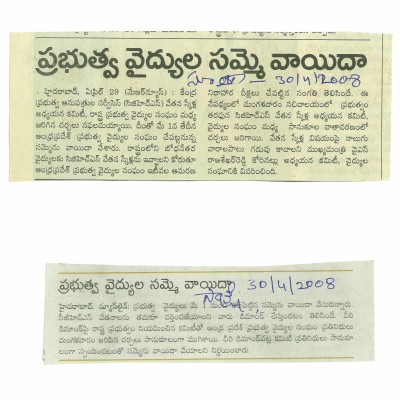 ప్రభుత్వ వైద్యుల సమ్మె వాయిదా
సూర్య - 30/4/2008
హైదరాబాద్, ఏప్రిల్ 29 (మేజర్‌న్యూస్) : కేంద్ర
ప్రభుత్వ ఆసుపత్రుల సర్వీసెస్ (సిజిహెచ్ఎస్) వేతన స్కేళ్ల
అధ్యయన కమిటీ, రాష్ట్ర ప్రభుత్వ వైద్యుల సంఘం మధ్య
జరిగిన చర్చలు సఫలమయ్యాయి. దీంతో మే 1న తేదీన
ఆంధ్రప్రదేశ్ ప్రభుత్వ వైద్యుల సంఘం చేపట్టనున్న
సమ్మెను వాయిదా వేశారు. రాష్ట్రంలోని బోధనేతర
వైద్యులకు సిజిహెచ్ఎస్ వేతన స్కేళ్లను ఇవ్వాలని కోరుతూ
ఆంధ్రప్రదేశ్ ప్రభుత్వ వైద్యుల సంఘం ఇటీవల ఆమరణ
నిరాహార దీక్షలు చేపట్టిన సంగతి తెలిసిందే. ఈ
నేపథ్యంలో మంగళవారం సచివాలయంలో ప్రభుత్వం
తరఫున సిజిహెచ్ఎస్ వేతన స్కేళ్ల అధ్యయన కమిటీ,
వైద్యుల సంఘం మధ్య సానుకూల వాతావరణంలో
చర్చలు జరిగాయి. వేతన స్కేళ్ల విషయంపై నాలుగు
వారాలపాటు గడువు కావాలని ముఖ్యమంత్రి వైఎస్
రాజశేఖర్‌రెడ్డి కోరినట్లు అధ్యయన కమిటీ, వైద్యుల
సంఘానికి వివరించింది.
ప్రభుత్వ వైద్యుల సమ్మె వాయిదా 30/4/2008
హైదరాబాద్, న్యూస్‌టైన్: ప్రభుత్వ వైద్యులు మే సమ్మెను వాయిదా వేసుకున్నారు.
సీజీహెచ్ఎస్ వేతనాలను తమకూ వర్తింపజేయాలని వారు డిమాండ్ చేస్తుండటం తెలిసిందే. వీరి
డిమాండ్‌పై రాష్ట్ర ప్రభుత్వం నియమించిన కమిటీతో ఆంధ్ర ప్రదేశ్ ప్రభుత్వ వైద్యుల సంఘం ప్రతినిధులు
మంగళవారం జరిపిన చర్చలు సానుకూలంగా ముగిశాయి. వీరి డిమాండ్‌పట్ల కమిటీ ప్రతినిధులు సానుకూ
లంగా స్పందించడంతో సమ్మెను వాయిదా వేయాలని నిర్ణయించారు.